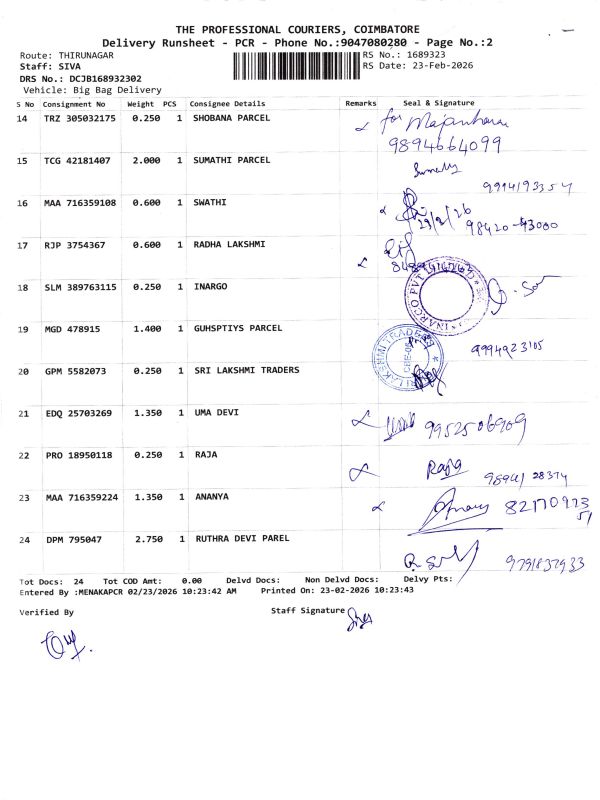 THE PROFESSIONAL COURIERS, COIMBATORE
Delivery Runsheet - PCR - Phone No.:9047080280 - Page No.:2
Route: THIRUNAGAR
RS No.: 1689323
Staff: SIVA
RS Date: 23-Feb-2026
DRS No.: DCJB168932302
Vehicle: Big Bag Delivery
S No Consignment No Weight PCS Consignee Details Remarks Seal & Signature
14 TRZ 305032175 0.250 1 SHOBANA PARCEL
for
9894664099
15 TCG 42181407 2.000 1 SUMATHI PARCEL
9994193354
16 MAA 716359108 0.600 1 SWATHI
23/2/26
98420-43000
17 RJP 3754367 0.600 1 RADHA LAKSHMI
18 SLM 389763115 0.250 1 INARGO
INARCO PVT LTD
19 MGD 478915 1.400 1 GUHSPTIYS PARCEL
9994923105
20 GPM 5582073 0.250 1 SRI LAKSHMI TRADERS
SRI LAKSHMI TRADERS
21 EDQ 25703269 1.350 1 UMA DEVI
9952506909
22 PRO 18950118 0.250 1 RAJA
Raja
98941 28374
23 MAA 716359224 1.350 1 ANANYA
82170973
51
24 DPM 795047 2.750 1 RUTHRA DEVI PAREL
9791837933
Tot Docs: 24 Tot COD Amt: 0.00 Delvd Docs: Non Delvd Docs: Delvy Pts:
Entered By :MENAKAPCR 02/23/2026 10:23:42 AM Printed On: 23-02-2026 10:23:43
Verified By
Staff Signature